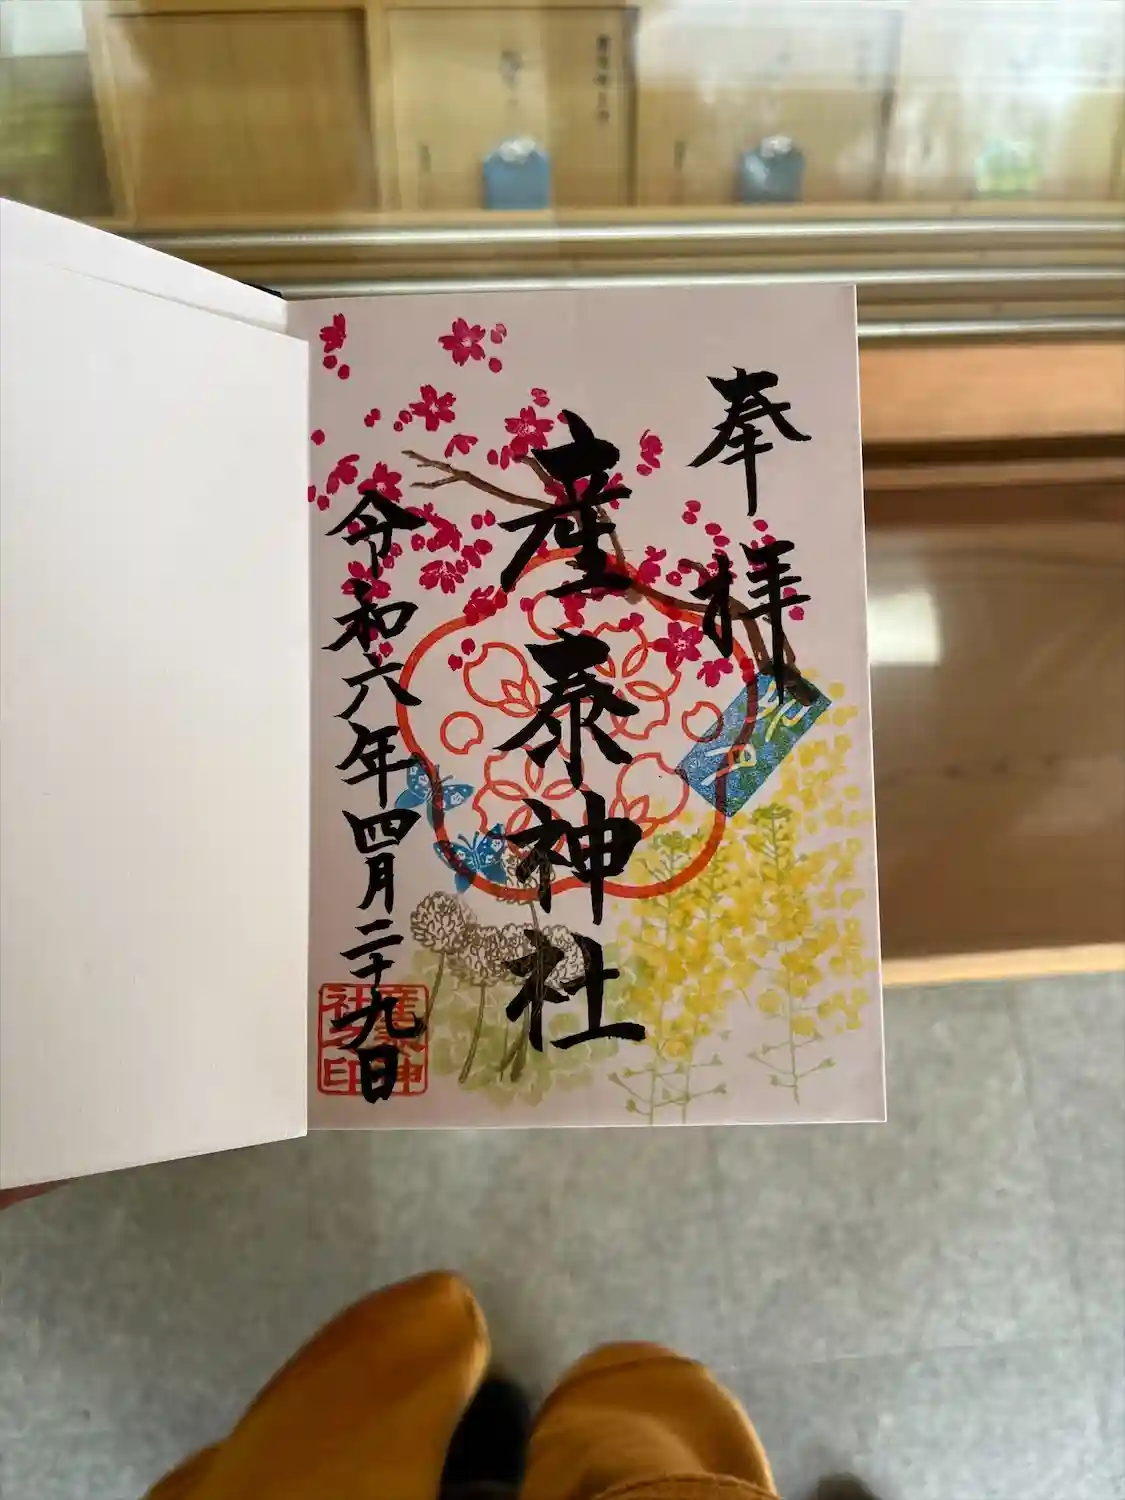 奉拝
産泰神社
令和六年四月二十九日
卯月
産泰神
社之印